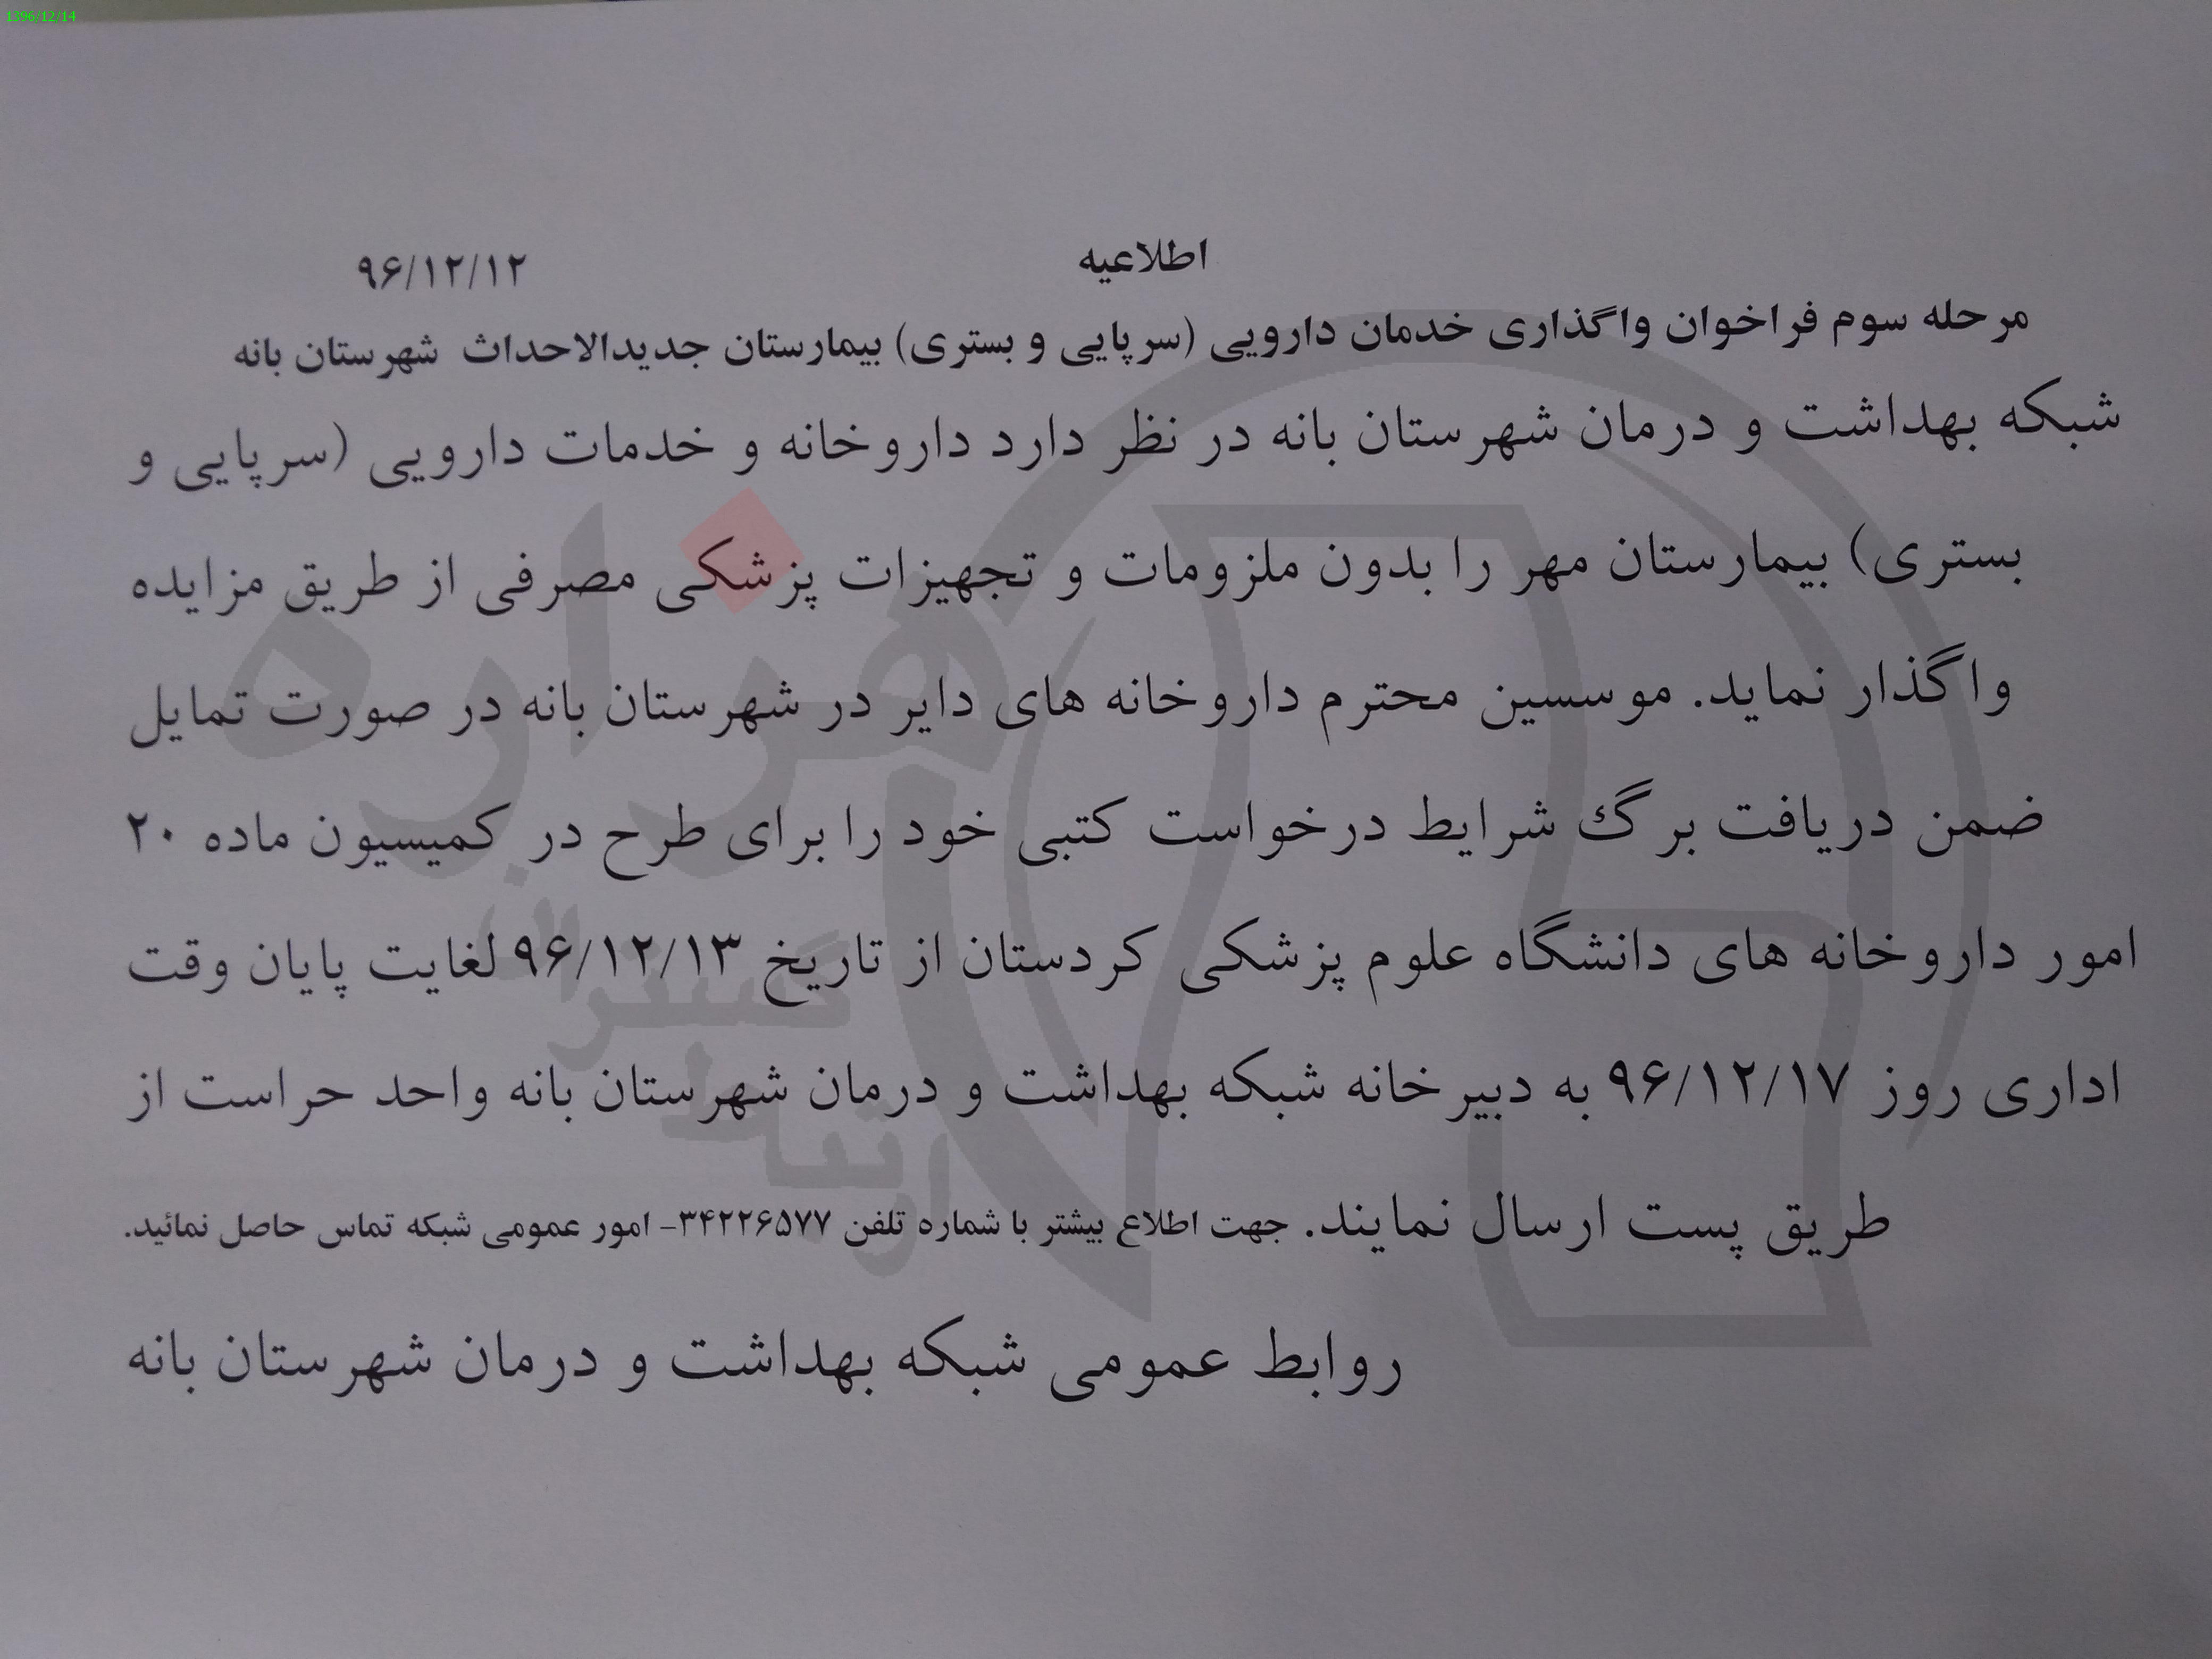 1396/12/14
اطلاعیه ۹۶/۱۲/۱۲
مرحله سوم فراخوان واگذاری خدمان دارویی (سرپایی و بستری) بیمارستان جدیدالاحداث شهرستان بانه
شبکه بهداشت و درمان شهرستان بانه در نظر دارد داروخانه و خدمات دارویی (سرپایی و
بستری) بیمارستان مهر را بدون ملزومات و تجهیزات پزشکی مصرفی از طریق مزایده
واگذار نماید. موسسین محترم داروخانه های دایر در شهرستان بانه در صورت تمایل
ضمن دریافت برگ شرایط درخواست کتبی خود را برای طرح در کمیسیون ماده ۲۰
امور داروخانه های دانشگاه علوم پزشکی کردستان از تاریخ ۹۶/۱۲/۱۳ لغایت پایان وقت
اداری روز ۹۶/۱۲/۱۷ به دبیرخانه شبکه بهداشت و درمان شهرستان بانه واحد حراست از
طریق پست ارسال نمایند. جهت اطلاع بیشتر با شماره تلفن ۳۴۲۲۶۵۷۷- امور عمومی شبکه تماس حاصل نمائید.
روابط عمومی شبکه بهداشت و درمان شهرستان بانه
هزاره
گستران
ارتباط